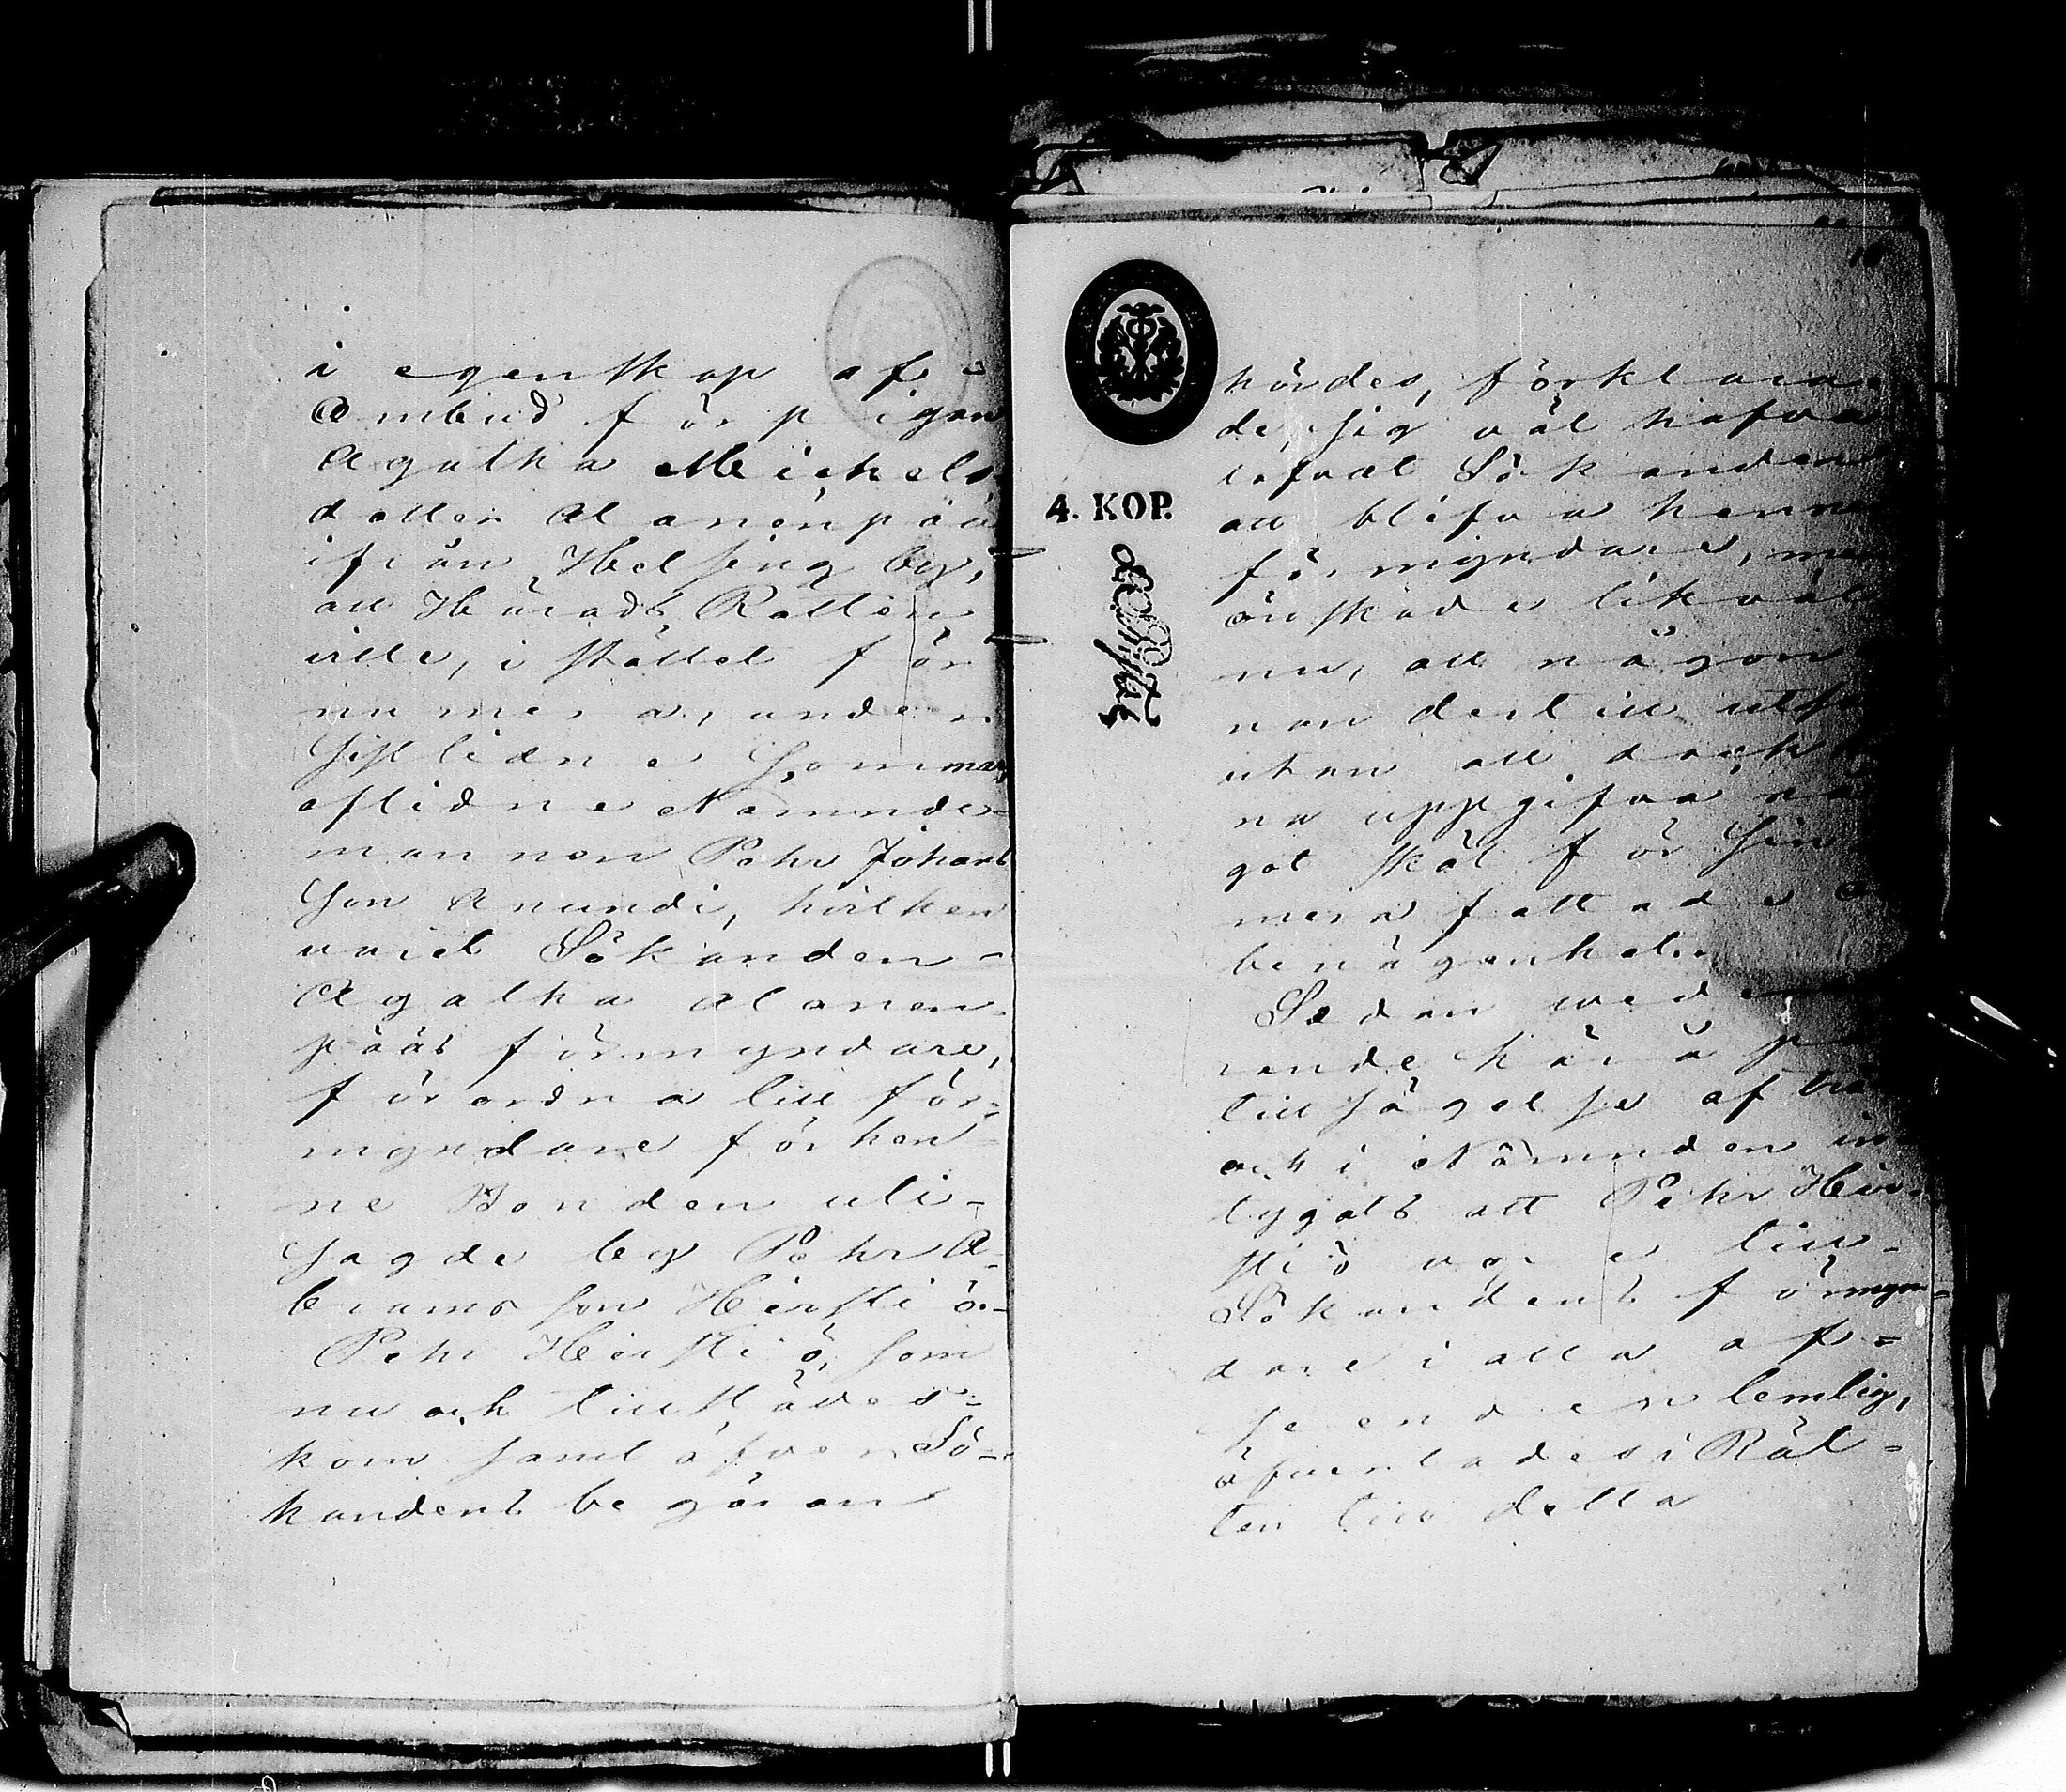 i egenskap af
Ombud för pigan
Agatha Michels
dotter Alanenpää
ifrån Helsing by,
att Härads Rätten
ville, i stället för
numera, under
sistlidne Sommar,
aflidne Nämnde-
mannen Pehr Johans
son Anundi, hvilken
varit Sökanden
Agatha Alanen-
pääs förmyndare,
förordna till för-
myndare för hen-
ne Bonden uti
sagde by Pehr A-
bramsson Heistiö.
Pehr Heistiö, som
nu ock tillstädes-
kom samt äfven Sö-
kandens begäran
18
4. KOP.
hördes, förklara-
de sig väl hafva
lofvat Sökanden
att blifva hennes
förmyndare, men
önskade likväl
nu, att någon
nan dertill
utan att dock
na uppgifva nå
got skäl för sin
mera fattade
benägenhet.
Sedan
rande härå
tillfägelse af
och i Nämnden in
tygats att Pehr Hei-
stiö vore till
Sökandens förmyn-
dare i alla af-
seenden lemlig,
öfverlades i Rät-
ten till detta